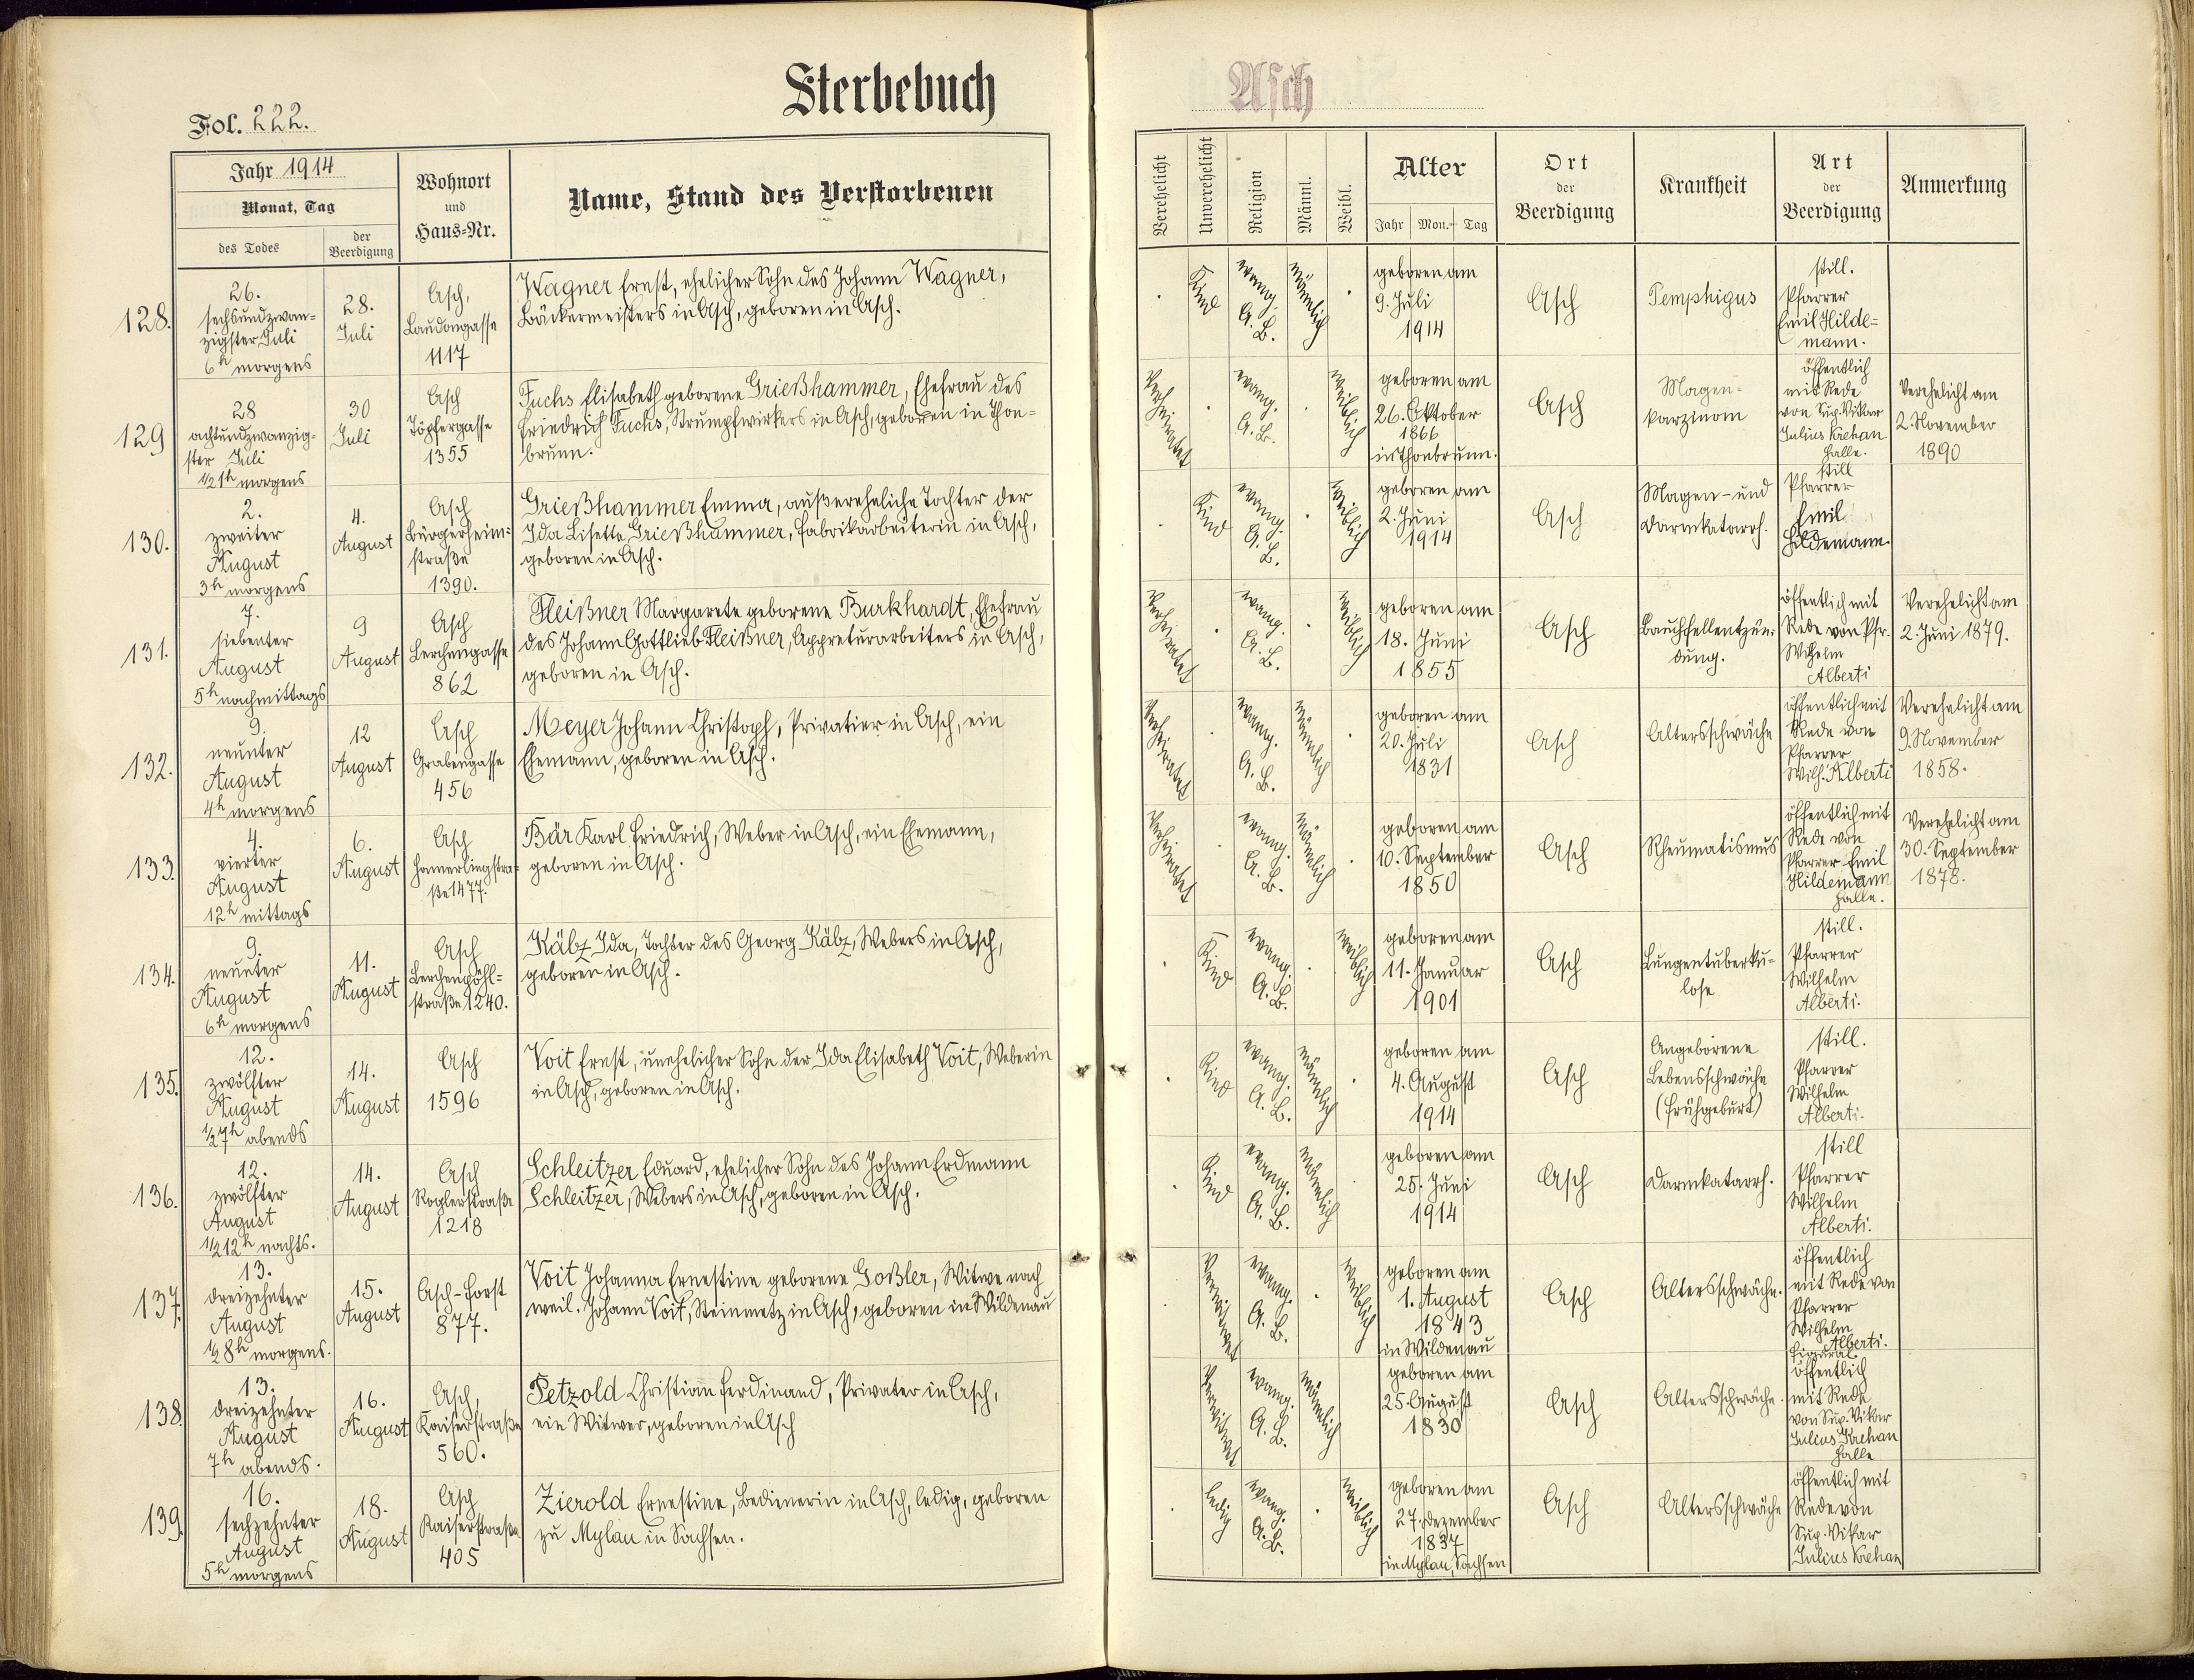 Sterbebuch
Asch
Fol. 222.
Jahr 1914
Monat, Tag
des Todes
der Beerdigung
Wohnort
und
Haus=Nr.
Name, Stand des Verstorbenen
Verehelicht
Unverehelicht
Religion
Männl.
Weibl.
Alter
Jahr Mon. Tag
Ort
der
Beerdigung
Krankheit
Art
der
Beerdigung
Anmerkung
128.
26.
sechsundzwan=
zigster Juli
6h morgens
28.
Juli
Asch,
Laudongasse
1117
Wagner Ernst, ehelicher Sohn des Johann Wagner,
Bäckermeisters in Asch, geboren in Asch.
Kind
evang.
A. B.
männlich
geboren am
9. Juli
1914
Asch
Pemphigus
still.
Pfarrer
Emil Hilde=
mann.
129
28
achtundzwanzig=
ster Juli
1/2 1h morgens
30
Juli
Asch
Töpfergasse
1355
Fuchs Elisabeth geborene Grießhammer, Ehefrau des
Friedrich Fuchs, Strumpfwirkers in Asch, geboren in Thon=
brunn.
Verheiratet
evang.
A. B.
weiblich
geboren am
26. Oktober
1866
in Thonbrunn.
Asch
Magen=
karzinom
öffentlich
mit Rede
von Sup. Vikar
Julius Krehan
Halle.
Verehelicht am
2. November
1890
130.
2.
zweiter
August
3h morgens
4.
August
Asch
Bürgerheim=
straße
1390.
Grießhammer Emma, außereheliche Tochter der
Ida Lisette Grießhammer, Fabrikarbeiterin in Asch,
geboren in Asch.
Kind
evang.
A. B.
weiblich
geboren am
2. Juni
1914
Asch
Magen- und
Darmkatarrh.
still
Pfarrer
Emil
Hildemann.
131.
7.
siebenter
August
5h nachmittags
9
August
Asch
Lerchengasse
862
Fleißner Margarete geborene Burkhardt, Ehefrau
des Johann Gottlieb Fleißner, Appreturarbeiters in Asch,
geboren in Asch.
Verheiratet
evang.
A. B.
weiblich
geboren am
18. Juni
1855
Asch
Bauchfellentzün=
dung.
öffentlich mit
Rede von Pfr.
Wilhelm
Alberti
Verehelicht am
2. Juni 1879.
132.
9.
neunter
August
4h morgens
12
August
Asch
Grabengasse
456
Meyer Johann Christoph, Privatier in Asch, ein
Ehemann, geboren in Asch.
Verheiratet
evang.
A. B.
männlich
geboren am
20. Juli
1831
Asch
Altersschwäche
öffentlich mit
Rede von
Pfarrer
Wilh. Alberti
Verehelicht am
9. November
1858.
133.
4.
vierter
August
12h mittags
6.
August
Asch
Hamerlingstra=
ße 1477.
Bär Karl Friedrich, Weber in Asch, ein Ehemann,
geboren in Asch.
Verheiratet
evang.
A. B.
männlich
geboren am
10. September
1850
Asch
Rheumatismus
öffentlich mit
Rede von
Pfarrer Emil
Hildemann
Halle.
Verehelicht am
30. September
1878.
134.
9.
neunter
August
6h morgens
11.
August
Asch
Lerchenpöhl=
straße 1240.
Käbz Ida, Tochter des Georg Käbz, Webers in Asch,
geboren in Asch.
Kind
evang.
A. B.
weiblich
geboren am
11. Januar
1901
Asch
Lungentuberku=
lose
still.
Pfarrer
Wilhelm
Alberti.
135.
12.
zwölfter
August
1/2 7h abends
14.
August
Asch
1596
Voit Ernst, unehelicher Sohn der Ida Elisabeth Voit, Weberin
in Asch, geboren in Asch.
Kind
evang.
A. B.
männlich
geboren am
4. August
1914
Asch
Angeborene
Lebensschwäche
(Frühgeburt)
still.
Pfarrer
Wilhelm
Alberti.
136.
12.
zwölfter
August
1/2 12h nachts.
14.
August
Asch
Roglerstraße
1218
Schleitzer Eduard, ehelicher Sohn des Johann Erdmann
Schleitzer, Webers in Asch, geboren in Asch.
Kind
evang.
A. B.
männlich
geboren am
25. Juni
1914
Asch
Darmkatarrh.
still
Pfarrer
Wilhelm
Alberti.
137.
13.
dreizehnter
August
1/2 8h morgens.
15.
August
Asch-Forst
877.
Voit Johanna Ernestine geborene Goßler, Witwe nach
weil. Johann Voit, Steinmetz in Asch, geboren in Wildenau
Verwitwet
evang.
A. B.
weiblich
geboren am
1. August
1843
in Wildenau
Asch
Altersschwäche.
öffentlich
mit Rede von
Pfarrer
Wilhelm
Alberti.
Figural
138.
13.
dreizehnter
August
7h abends.
16.
August
Asch,
Kaiserstraße
560.
Petzold Christian Ferdinand, Privater in Asch,
ein Witwer, geboren in Asch
Verwitwet
evang.
A. B.
männlich
geboren am
25. August
1830
Asch
Altersschwäche.
öffentlich
mit Rede
von Sup. Vikar
Julius Krehan
Halle
139.
16.
sechzehnter
August
5h morgens
18.
August
Asch
Kaiserstraße
405
Zierold Ernestine, Bedienerin in Asch, ledig, geboren
zu Mylau in Sachsen.
ledig
evang.
A. B.
weiblich
geboren am
27. Dezember
1837
in Mylau, Sachsen
Asch
Altersschwäche
öffentlich mit
Rede von
Sup. Vikar
Julius Krehan